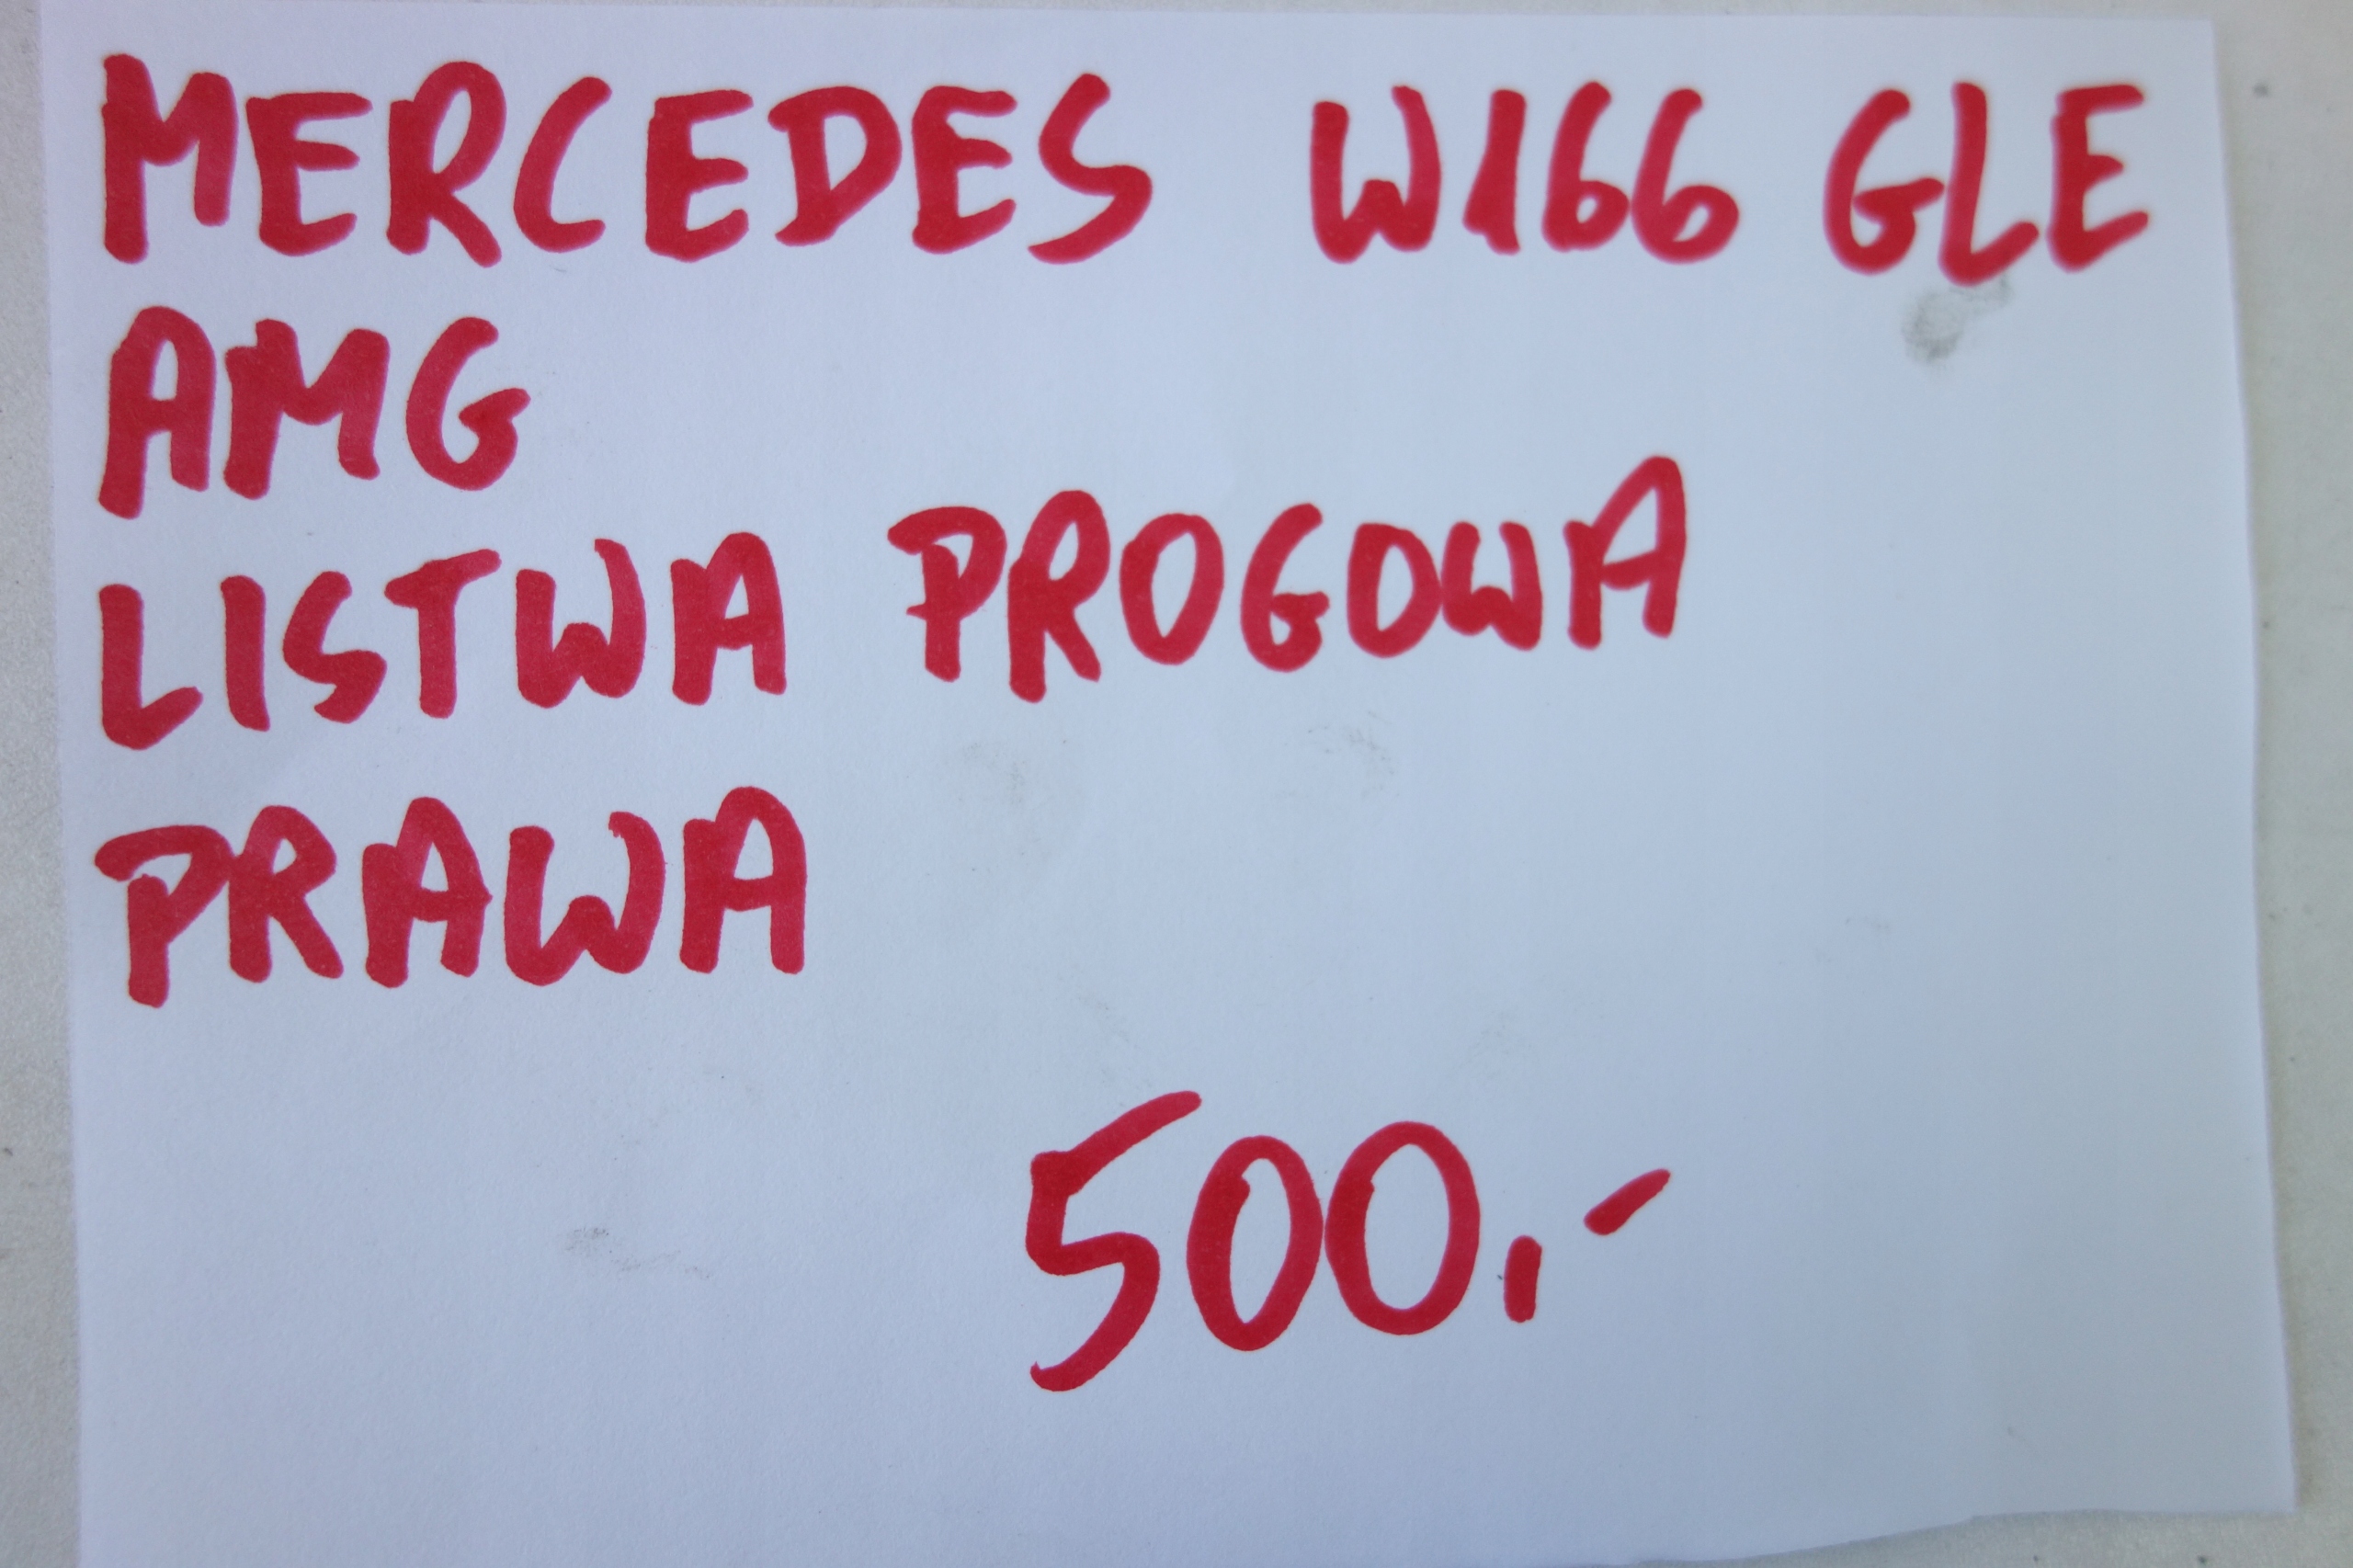 MERCEDES W166 GLE
AMG
LISTWA PROGOWA
PRAWA
500,-